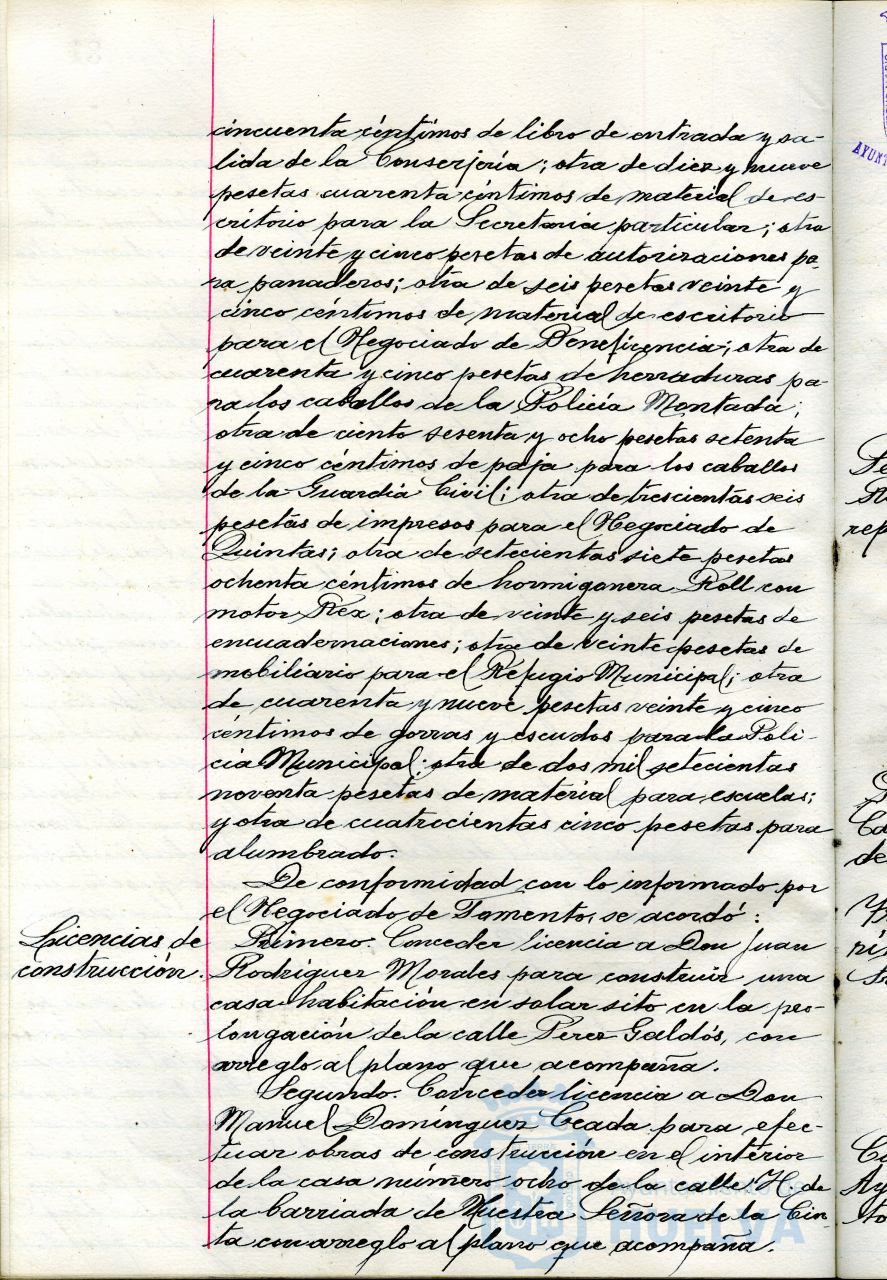 cincuenta céntimos de libro de entrada y sa-
lida de la Conserjería; otra de diez y nueve
pesetas cuarenta céntimos de material de es-
critorio para la Secretaria particular; otra
de veinte y cinco pesetas de autorizaciones pa-
ra panaderos; otra de seis pesetas veinte y
cinco céntimos de material de escritorio
para el Negociado de Beneficencia; otra de
cuarenta y cinco pesetas de herraduras pa-
ra los caballos de la Policía Montada;
otra de ciento sesenta y ocho pesetas setenta
y cinco céntimos de paja para los caballos
de la Guardia Civil; otra de trescientas seis
pesetas de impresos para el Negociado de
Quintas; otra de setecientas siete pesetas
ochenta céntimos de hormigonera Roll con
motor Rex; otra de veinte y seis pesetas de
encuadernaciones; otra de veinte pesetas de
mobiliario para el Refugio Municipal; otra
de cuarenta y nueve pesetas veinte y cinco
céntimos de gorras y escudos para la Poli-
cia Municipal; otra de dos mil setecientas
noventa pesetas de material para escuelas;
y otra de cuatrocientas cinco pesetas para
alumbrado.
De conformidad con lo informado por
el Negociado de Fomento, se acordó:
Licencias de
construcción.
Primero. Conceder licencia a Don Juan
Rodriguez Morales para construir una
casa habitación en solar sito en la pro-
longación de la calle Perez Galdós, con
arreglo al plano que acompaña.
Segundo. Conceder licencia a Don
Manuel Domínguez Ceada para efec-
tuar obras de construcción en el interior
de la casa número ocho de la calle H. de
la barriada de Nuestra Señora de la Cin
ta con arreglo al plano que acompaña.
Ayuntamiento de
HUELVA